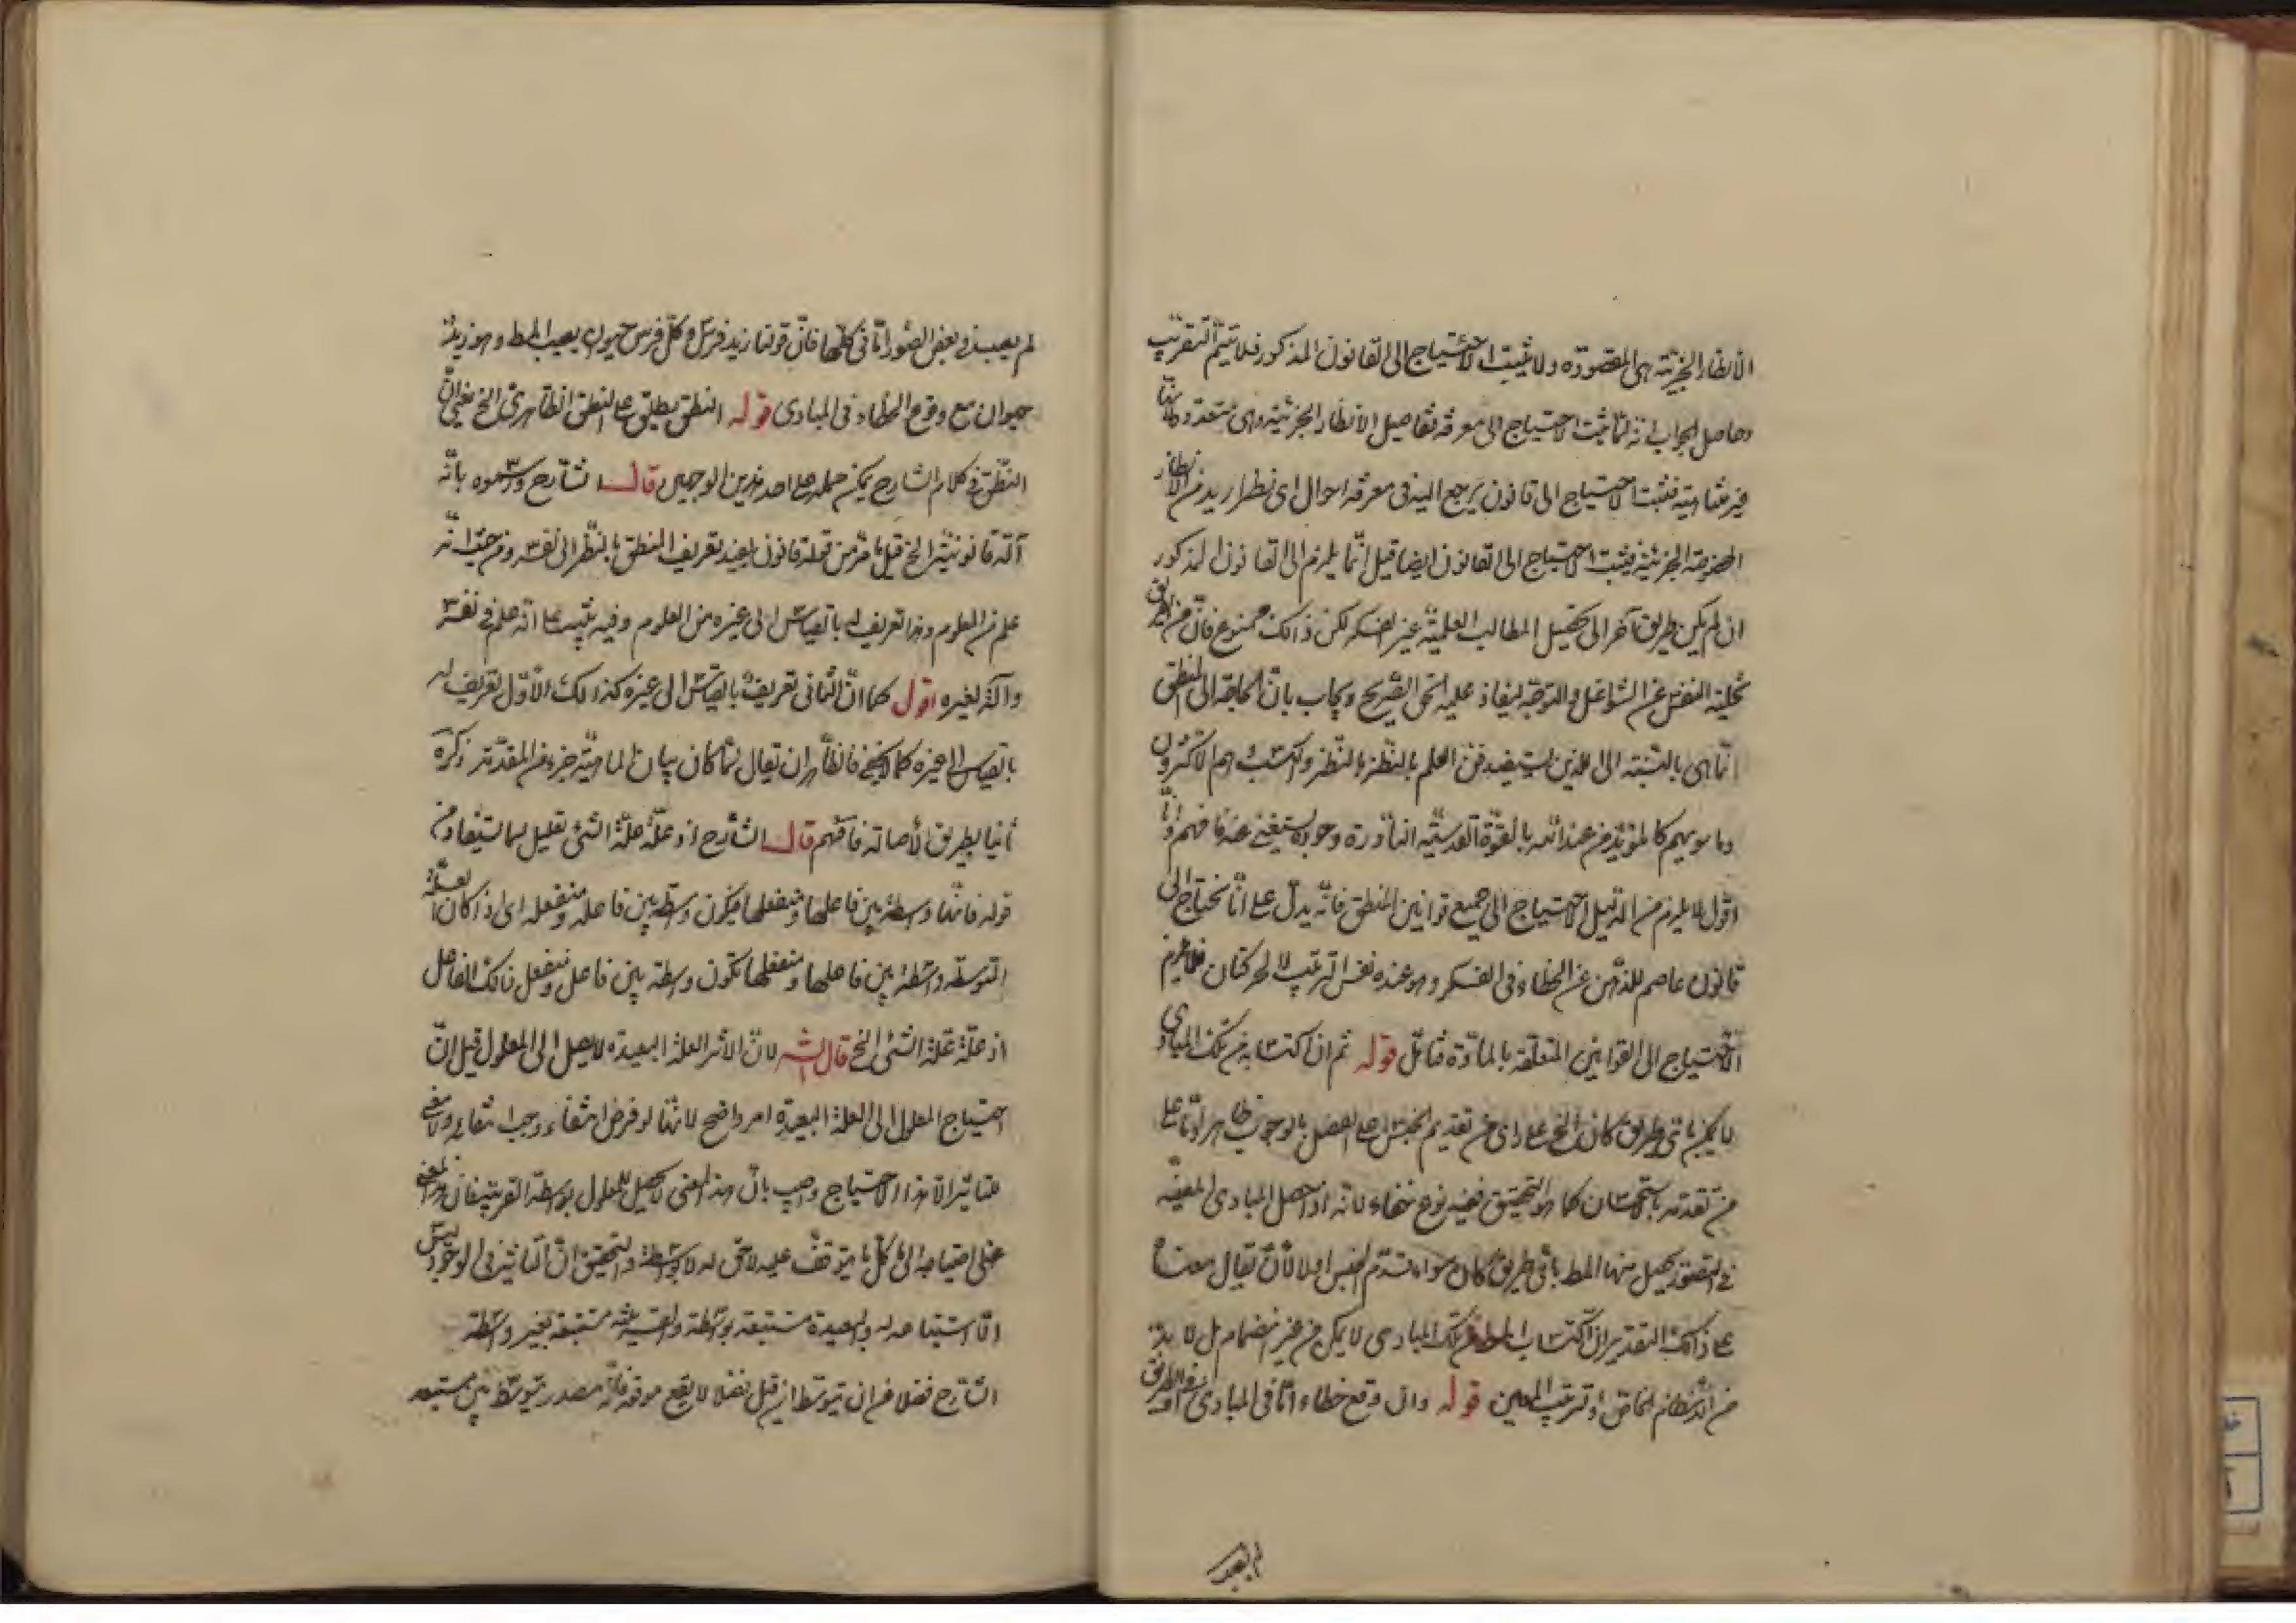 الانظار الجزئية هى المقصودة ولا يثبت الاحتياج الى القانون المذكور فلا يتم التقريب
وحاصل الجواب انه لما ثبت الاحتياج الى معرفة تفاصيل الانظار الجزئية وهى متعددة
غير متناهية فثبت الاحتياج الى قانون يرجع اليه فى معرفة احوال اى نظر اريد من الانظار
المخصوصة الجزئية فيثبت الاحتياج الى القانون ايضا قيل انما يلزم الى القانون المذكور
ان لم يكن طريق آخر الى تحصيل المطالب العلمية غير الفكر لكن ذالك ممنوع فان من الطريق
تخلية النفس عن الشواغل والتوجه ليفاد عليه الحق الصريح ويجاب بان الحاجة الى المنطق
انما هى بالنسبة الى الذين يستفيدون العلم بالنظر والكسب وهم الاكثرون
وما سويهم كالمؤيد من عند الله بالقوة القدسية النادرة وجوده يستغنى عنه فافهم وانا
اقول لا يلزم من الدليل الاحتياج الى جميع قوانين المنطق فانه يدل على انا نحتاج الى
قانون عاصم للذهن عن الخطاء فى الفكر وهو عنده نفس الترتيب لا الحركتان فلا يلزم
الاحتياج الى القوانين المتعلقة بالمادة فتامل قوله ثم ان اكتسابه من تلك المبادى
لا يمكن باى طريق كان الخ على راى من تقديم الجنس على الفصل بالوجوب ظاهر واما على
من تقدمه بالاستحسان كما هو التحقيق ففيه نوع خفاء لانه اذا حصل المبادى المعينة
فى التصور يحصل منها المط باى طريق كان سواء تقدم الجنس اولا الا ان يقال معناه
على ذالك التقدير ان اكتساب المط من تلك المبادى لا يمكن من غير انضمام بل لا بد
من الانتظام الخاص او ترتيب المعين قوله وان وقع خطاء اما فى المبادى او الطريق
لم يصب
لم يصب فى بعض الصور اما فى كلها فان قولنا زيد فرس وكل فرس حيوان يصيب المط وهو زيد
حيوان مع وقوع الخطاء فى المبادى قوله النطق يطلق على النطق الظاهرى الخ يعنى ان
النطق فى كلام الشارح يمكن حمله على احد هذين الوجهين قال الشارح ورسموه بانه
آلة قانونية الخ قيل ما مر من قوله قانون يفيد تعريف المنطق بالنظر الى نفسه ومن حيث انه
علم من العلوم وهذا تعريف له بالقياس الى غيره من العلوم وفيه تنبيه على انه علم فى نفسه
وآلة لغيره اقول كما ان الثانى تعريف بالقياس الى غيره كذالك الاول تعريف له
بالقياس الى غيره كما لا يخفى فالظاهر ان يقال لما كان بيان الماهية جزء من المقدمة ذكره
ثانيا بطريق الاصالة فافهم قال الشارح اذ علة علة الشئ تعليل لما يستفاد من
قوله فانها واسطة بين فاعلها ومنفعلها فيكون واسطة بين فاعله ومنفعله اى اذا كان العلة
المتوسطة واسطة بين فاعلها ومنفعلها تكون واسطة بين فاعل ومنفعل ذالك الفاعل
اذ علة علة الشئ الخ قال الشه لان الاثر العلة البعيدة لا يصل الى المعلول قيل ان
احتياج المعلول الى العلة البعيدة امر واضح لانها لو فرض انتفاء وجب انتفائه ولا معنى
للتاثير الا هذا الاحتياج واجيب بان هذا المعنى لا يحصل للمعلول بواسطة القريبة فان
على احتياجه الى كل ما يتوقف عليه لاحق له لا بواسطة والتحقيق ان التاثير فى الوجود ليس
الا استتباعه له والبعيدة مستتبعة بواسطة والقريبة مستتبعة بغير واسطة
الشارح فضلا من ان يتوسط ان قيل فضلا لا يقع موقعه فانه مصدر يتوسط بين مستبعد